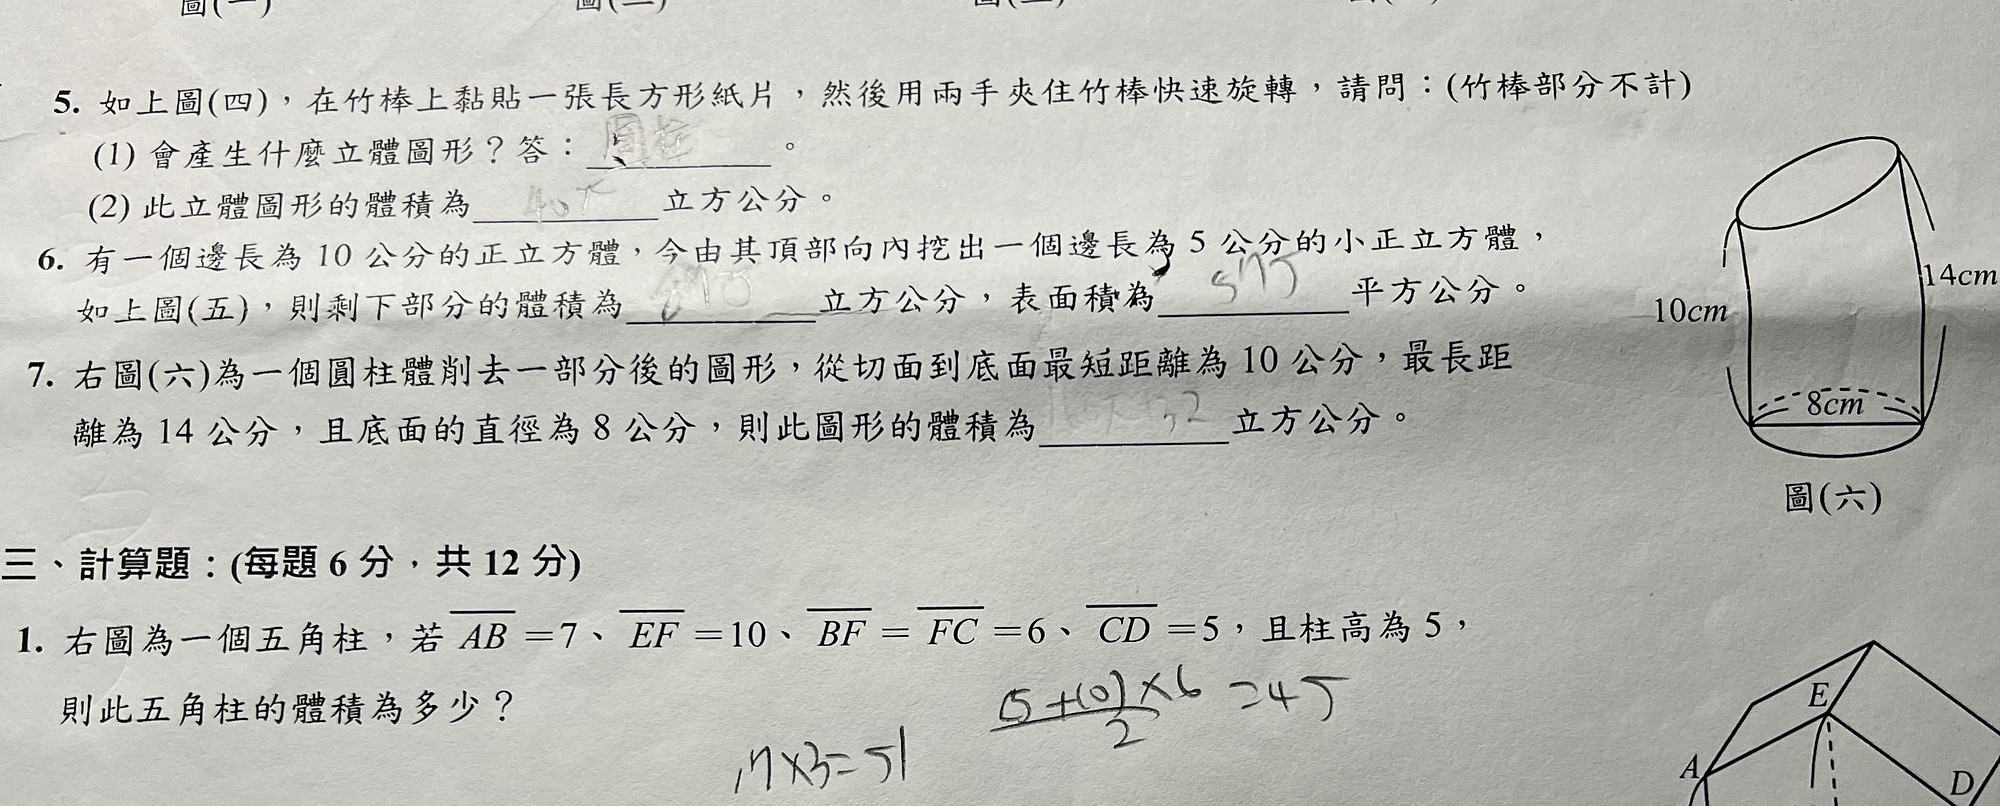 5. 如上圖(四)，在竹棒上黏貼一張長方形紙片，然後用兩手夾住竹棒快速旋轉，請問：(竹棒部分不計)
(1) 會產生什麼立體圖形？答：圓柱。
(2) 此立體圖形的體積為 40π 立方公分。
6. 有一個邊長為 10 公分的正立方體，今由其頂部向內挖出一個邊長為 5 公分的小正立方體，
如上圖(五)，則剩下部分的體積為 875 立方公分，表面積為 立方公分。
7. 右圖(六)為一個圓柱體削去一部分後的圖形，從切面到底面最短距離為 10 公分，最長距
離為 14 公分，且底面的直徑為 8 公分，則此圖形的體積為 立方公分。
10cm
14cm
8cm
圖(六)
三、計算題：(每題 6 分，共 12 分)
1. 右圖為一個五角柱，若 AB =7、EF =10、BF = FC =6、CD =5，且柱高為 5，
則此五角柱的體積為多少？
(5+10)×6/2 =45
17×3=51
E
A
D